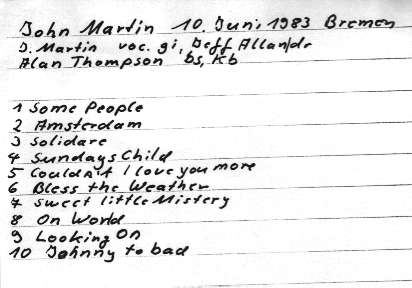 John Martin 10. Juni 1983 Bremen
J. Martin voc. gi, Jeff Allan/dr
Alan Thompson bs, kb
1 Some People
2 Amsterdam
3 Solidare
4 Sundays Child
5 Couldn't I love you more
6 Bless the Weather
7 Sweet little Mistery
8 On World
9 Looking On
10 Johnny to bad